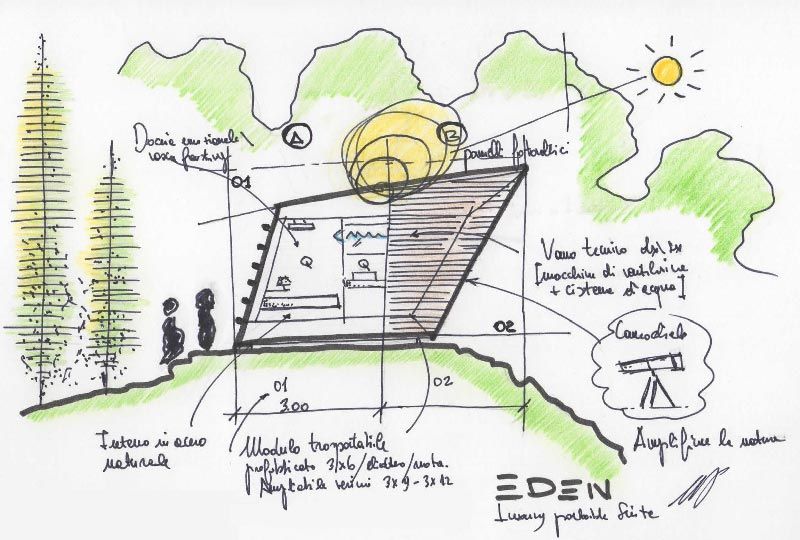 A
B
Doccia emozionale
pannelli fotovoltaici
01
Vano tecnico
[macchine di ventilazione
+ cisterne d'acqua]
02
Cannocchiale
01
02
3.00
Interno in acero
naturale
Modulo trasportabile
prefabbricato 3x6
Ampliabile 3x9 - 3x12
Amplificare la natura
EDEN
Luxury portable Suite